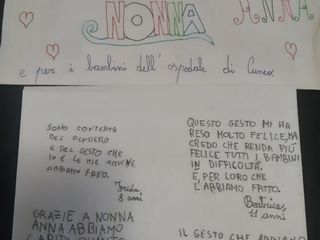 NONNA ANNA
e per i bambini dell'ospedale di Cuneo.
SONO CONTENTA
DEL PENSIERO
E DEL GESTO CHE
IO E LE MIE AMICHE
ABBIAMO FATTO.
Frida,
8 anni
QUESTO GESTO MI HA
RESO MOLTO FELICE, MA
CREDO CHE RENDA PIÙ
FELICE TUTTI I BAMBINI
IN DIFFICOLTÀ.
E PER LORO CHE
L'ABBIAMO FATTO.
Beatrice,
11 anni
GRAZIE A NONNA
ANNA ABBIAMO
CAPITO QUANTO
IL GESTO CHE ABBIAMO